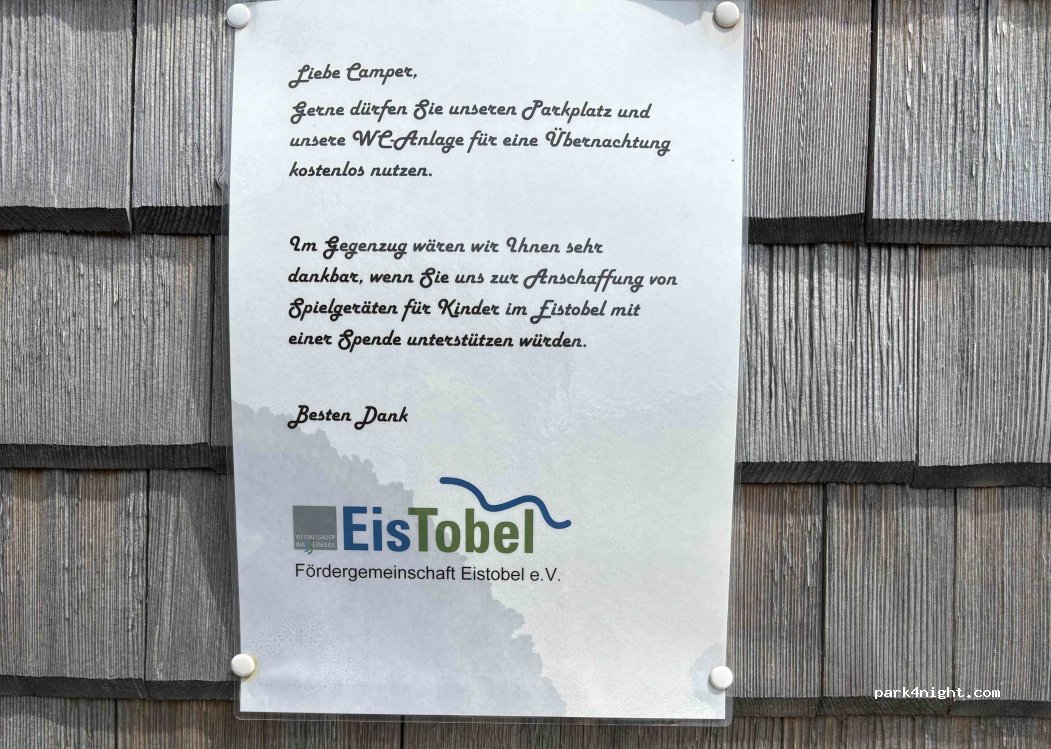 Liebe Camper,
Gerne dürfen Sie unseren Parkplatz und
unsere WC-Anlage für eine Übernachtung
kostenlos nutzen.
Im Gegenzug wären wir Ihnen sehr
dankbar, wenn Sie uns zur Anschaffung von
Spielgeräten für Kinder im Eistobel mit
einer Spende unterstützen würden.
Besten Dank
WESTALLGÄUER
WASSERWEGE
EisTobel
Fördergemeinschaft Eistobel e.V.
park4night.com